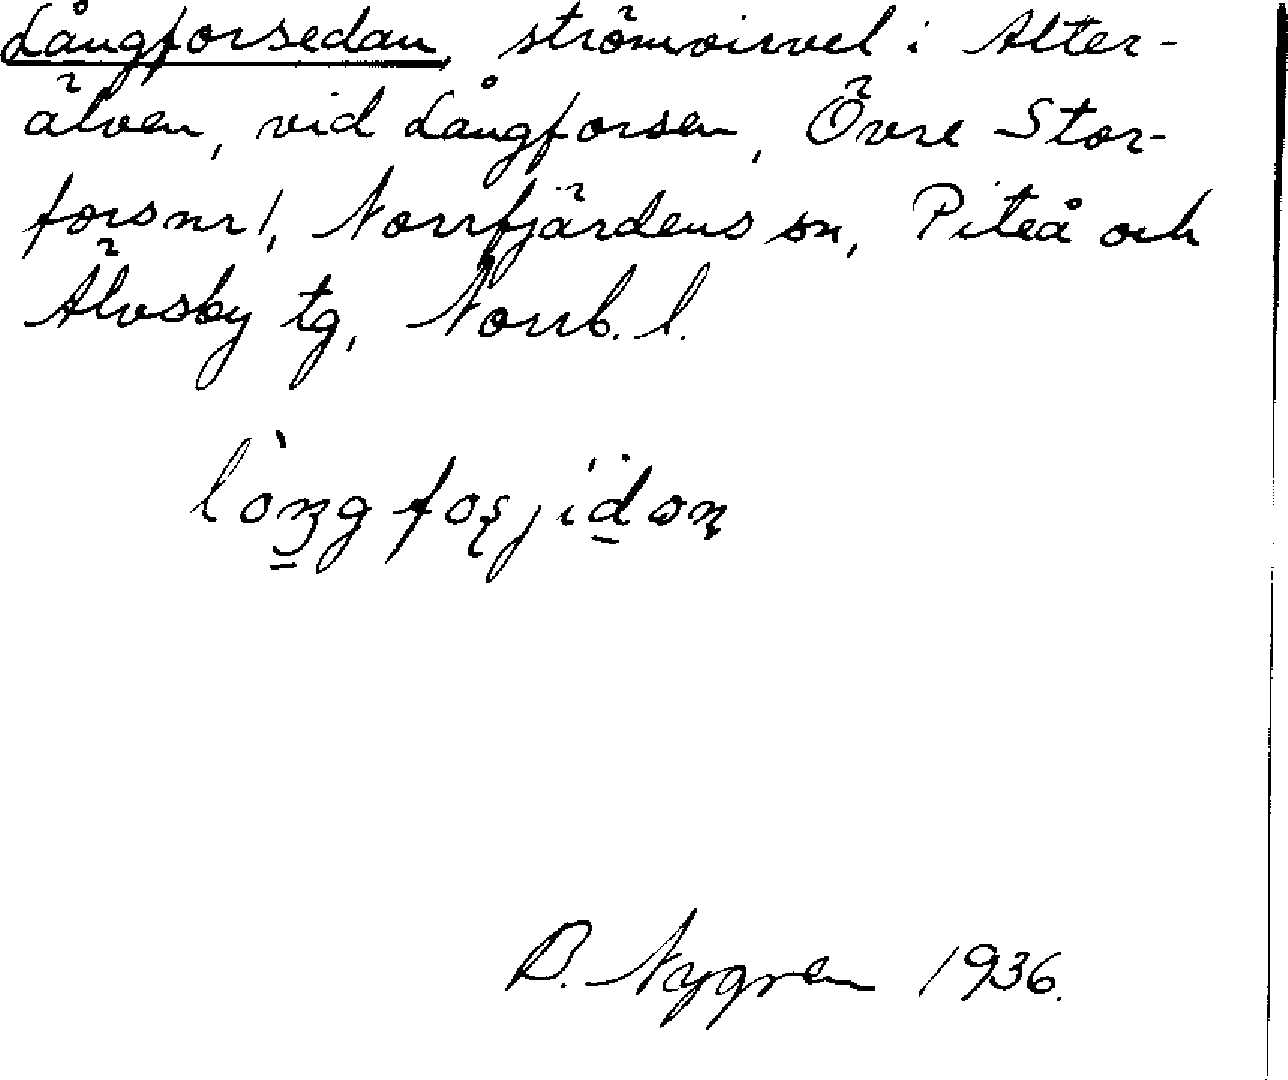 Långforsedan, strömvirvel i Alter-
älven, vid Långforsen, Övre Stor-
forsnr 1, Norrfjärdens sn, Piteå och
Älvsby tg, Norrb. l.
B. Nygren 1936.